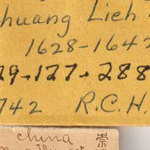 huang Lieh
1628-1642
29.127.288
742 R.C.H.
China
崇